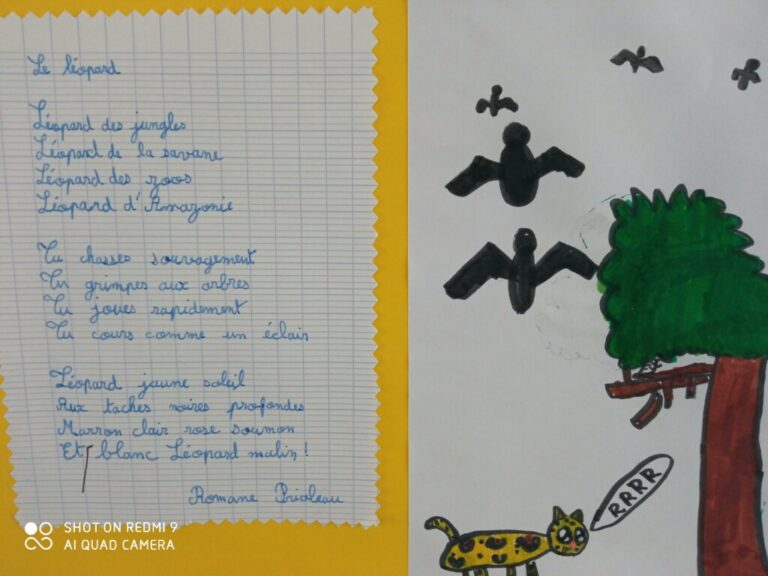 Le léopard
Léopard des jungles
Léopard de la savane
Léopard des zoos
Léopard d'Amazonie
Tu chasses sauvagement
Tu grimpes aux arbres
Tu joues rapidement
Tu cours comme un éclair
Léopard jaune soleil
Aux taches noires profondes
Marron clair rose saumon
Et blanc Léopard malin !
Romane
RRRR
SHOT ON REDMI 9
AI QUAD CAMERA